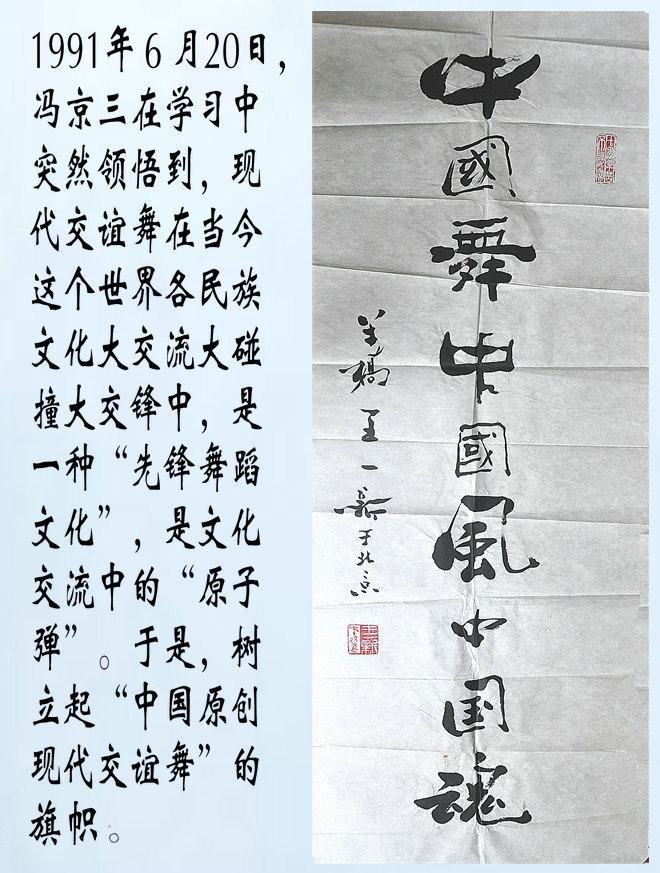 1991年6月20日，
冯京三在学习中
突然领悟到，现
代交谊舞在当今
这个世界各民族
文化大交流大碰
撞大交锋中，是
一种“先锋舞蹈
文化”，是文化
交流中的“原子
弹”。于是，树
立起“中国原创
现代交谊舞”的
旗帜。
中國舞中國風中国魂
王一新于北京